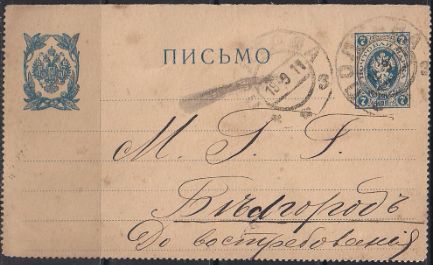 ПИСЬМО
7 7
19-9 11
М. Г. Г.
Бѣлгородъ
До востребованія